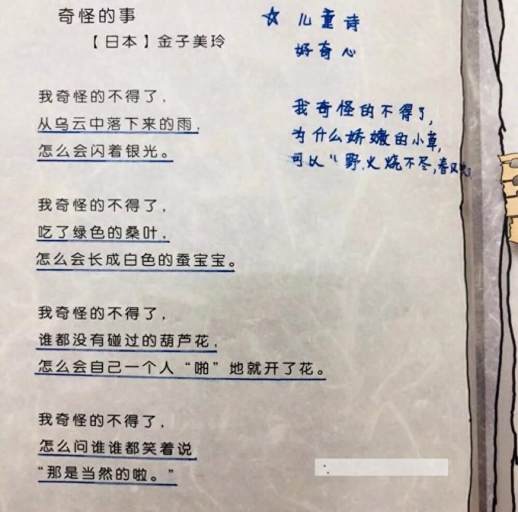 奇怪的事
【日本】金子美玲
我奇怪的不得了，
从乌云中落下来的雨，
怎么会闪着银光。
我奇怪的不得了，
吃了绿色的桑叶，
怎么会长成白色的蚕宝宝。
我奇怪的不得了，
谁都没有碰过的葫芦花，
怎么会自己一个人“啪”地就开了花。
我奇怪的不得了，
怎么问谁谁都笑着说
“那是当然的啦。”
☆ 儿童诗
好奇心
我奇怪的不得了，
为什么娇嫩的小草，
可以“野火烧不尽，春风吹